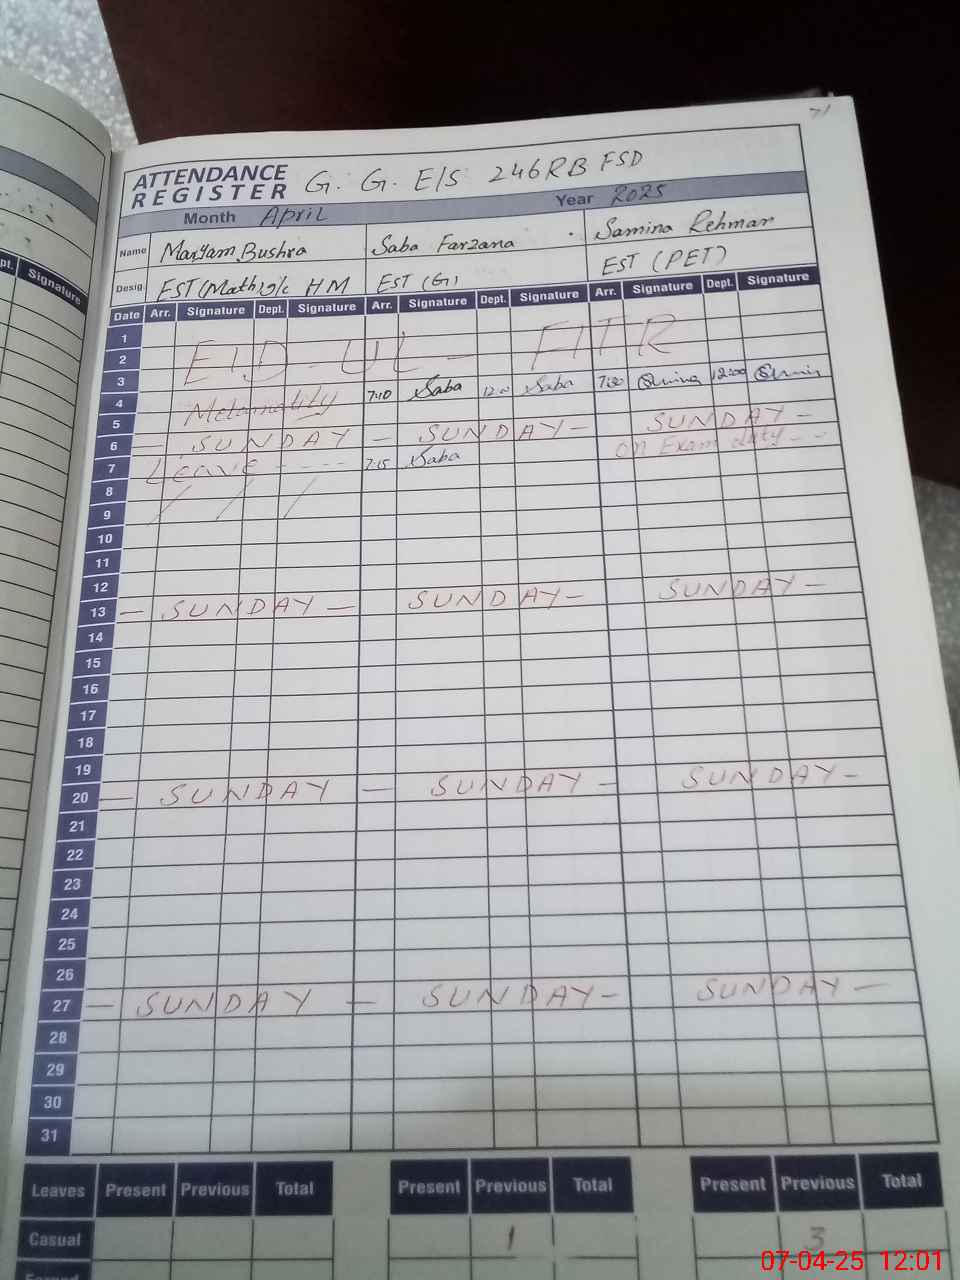 71
ATTENDANCE REGISTER G. G. E/S 246RB FSD
Month April Year 2025
pt. Signature
Name Maryam Bushra Saba Farzana Samina Rehman
Desig. EST(Math) i/c HM EST (G) EST (PET)
Date Arr. Signature Dept. Signature Arr. Signature Dept. Signature Arr. Signature Dept. Signature
1
2 EID - UL - FITR
3
4 7:10 Saba Saba 7:30 12:00
5
6 — SUNDAY — SUNDAY — SUNDAY —
7 Leave - - - - 7:15 Saba on Exam duty - -
8
9
10
11
12
13 — SUNDAY — SUNDAY — SUNDAY —
14
15
16
17
18
19
20 — SUNDAY — SUNDAY — SUNDAY —
21
22
23
24
25
26
27 — SUNDAY — SUNDAY — SUNDAY —
28
29
30
31
Leaves Present Previous Total Present Previous Total Present Previous Total
Casual 1 3
07-04-25 12:01